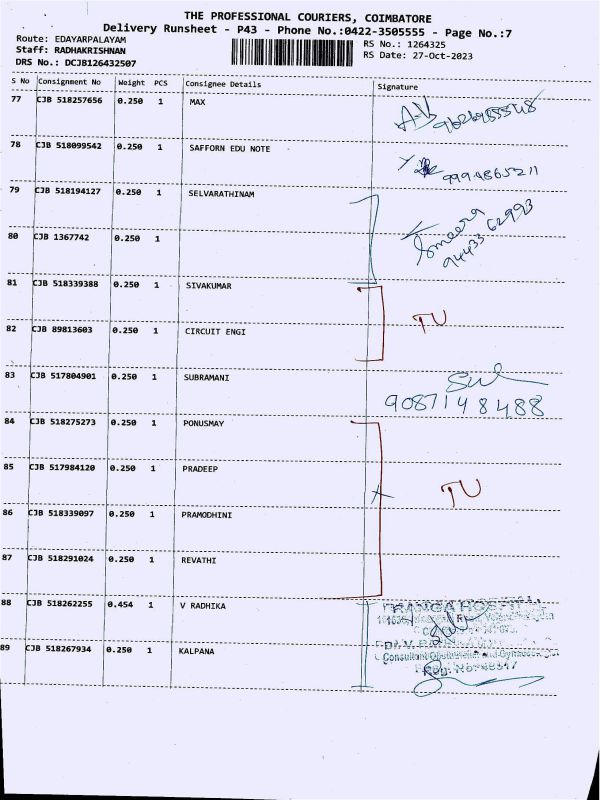 THE PROFESSIONAL COURIERS, COIMBATORE
Delivery Runsheet - P43 - Phone No.:0422-3505555 - Page No.:7
Route: EDAYARPALAYAM RS No.: 1264325
Staff: RADHAKRISHNAN RS Date: 27-Oct-2023
DRS No.: DCJB126432507
S No Consignment No Weight PCS Consignee Details Signature
77 CJB 518257656 0.250 1 MAX
78 CJB 518099542 0.250 1 SAFFORN EDU NOTE
9994865211
79 CJB 518194127 0.250 1 SELVARATHINAM
80 CJB 1367742 0.250 1
9443362993
81 CJB 518339388 0.250 1 SIVAKUMAR
TU
82 CJB 89813603 0.250 1 CIRCUIT ENGI
83 CJB 517804901 0.250 1 SUBRAMANI
9087148488
84 CJB 518275273 0.250 1 PONUSMAY
85 CJB 517984120 0.250 1 PRADEEP
TU
86 CJB 518339097 0.250 1 PRAMODHINI
87 CJB 518291024 0.250 1 REVATHI
88 CJB 518262255 0.454 1 V RADHIKA
89 CJB 518267934 0.250 1 KALPANA
Consultant
Reg. No: